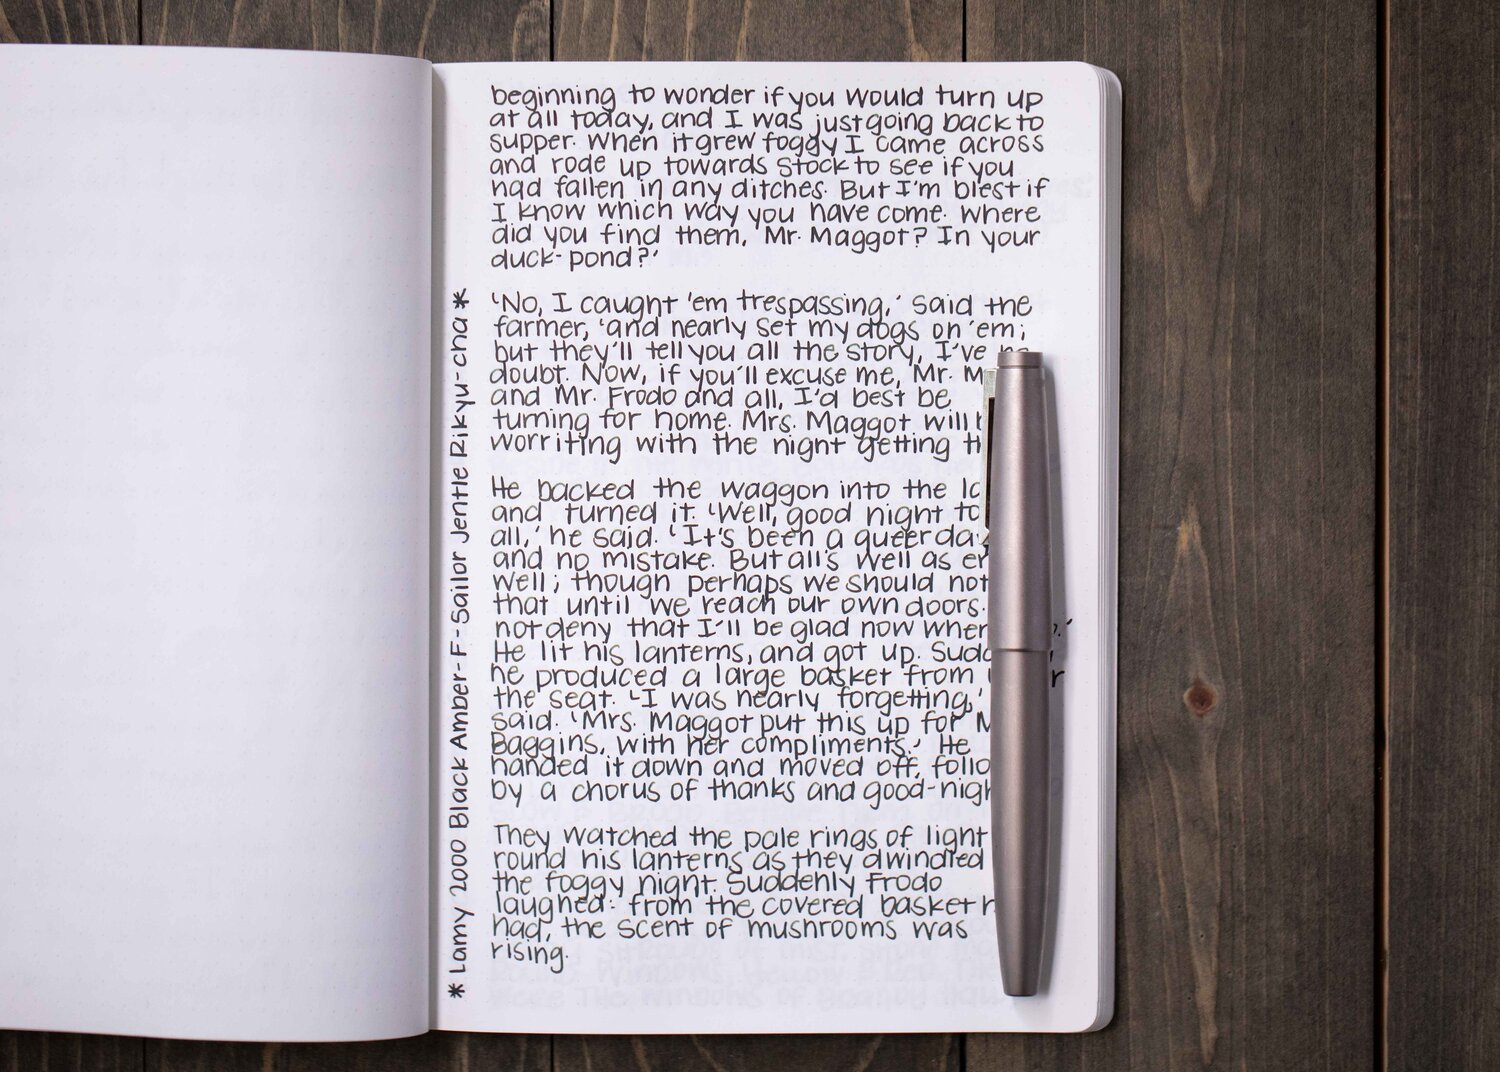 beginning to wonder if you would turn up
at all today, and I was just going back to
supper. When it grew foggy I came across
and rode up towards Stock to see if you
had fallen in any ditches. But I'm blest if
I know which way you have come. Where
did you find them, Mr. Maggot? In your
duck-pond?'
'No, I caught 'em trespassing,' said the
farmer, 'and nearly set my dogs on 'em;
but they'll tell you all the story, I've
doubt. Now, if you'll excuse me, Mr.
and Mr. Frodo and all, I'd best be
turning for home. Mrs. Maggot will
worriting with the night getting
He backed the waggon into the
and turned it. 'Well, good night to
all,' he said. 'It's been a queer
and no mistake. But all's well as
well; though perhaps we should not
that until we reach our own doors.
not deny that I'll be glad now
He lit his lanterns, and got up.
he produced a large basket from
the seat. 'I was nearly forgetting,'
said. 'Mrs. Maggot put this up for
Baggins, with her compliments.' He
handed it down and moved off,
by a chorus of thanks and
They watched the pale rings of light
round his lanterns as they dwindled
the foggy night. Suddenly Frodo
laughed: from the covered basket
had, the scent of mushrooms was
rising.
* Lamy 2000 Black Amber - F - Sailor Jentle Rikyu-cha *